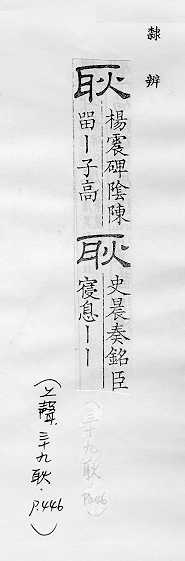 隸辨
耿
楊震碑陰陳
留｜子高
耿
史晨奏銘臣
寢息｜｜
(三十九耿 P.446)
(上聲.三十九耿.P.446)